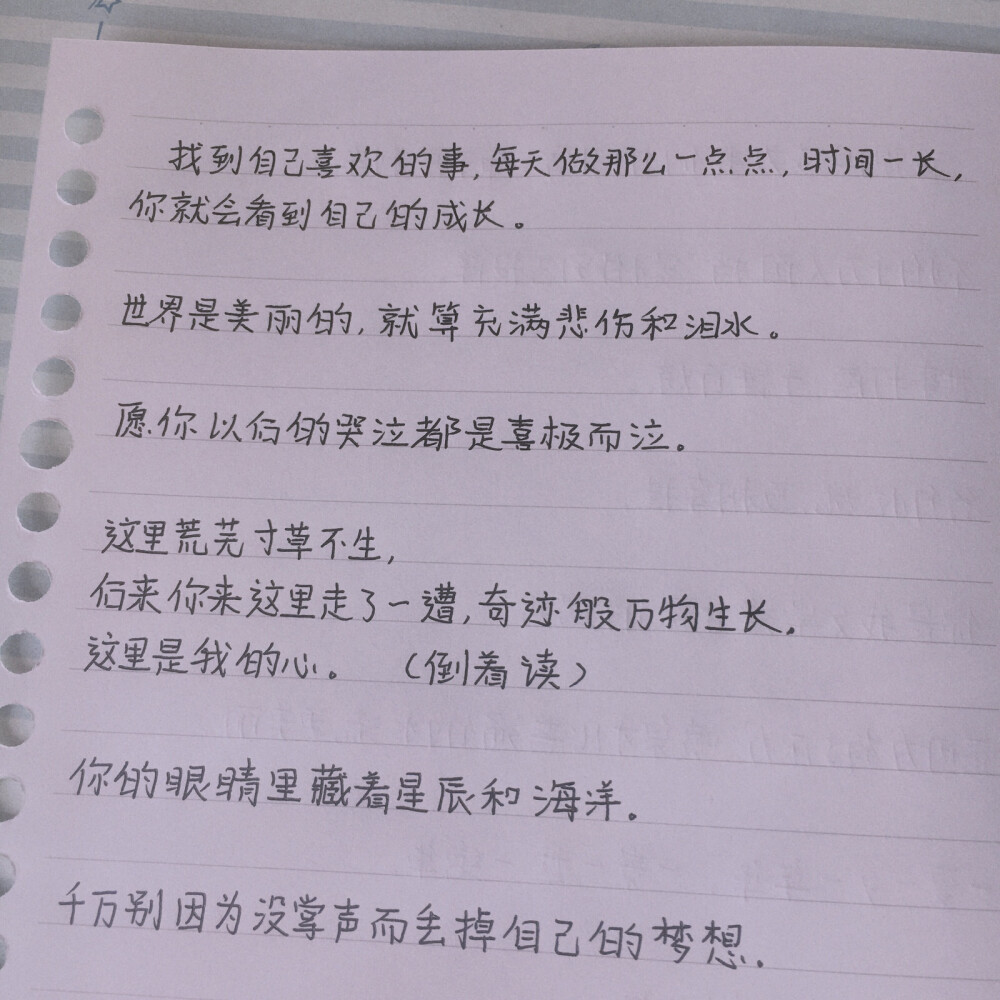 找到自己喜欢的事,每天做那么一点点,时间一长,
你就会看到自己的成长。
世界是美丽的,就算充满悲伤和泪水。
愿你以后的哭泣都是喜极而泣。
这里荒芜寸草不生,
后来你来这里走了一遭,奇迹般万物生长.
这里是我的心。 (倒着读)
你的眼睛里藏着星辰和海洋。
千万别因为没掌声而丢掉自己的梦想.